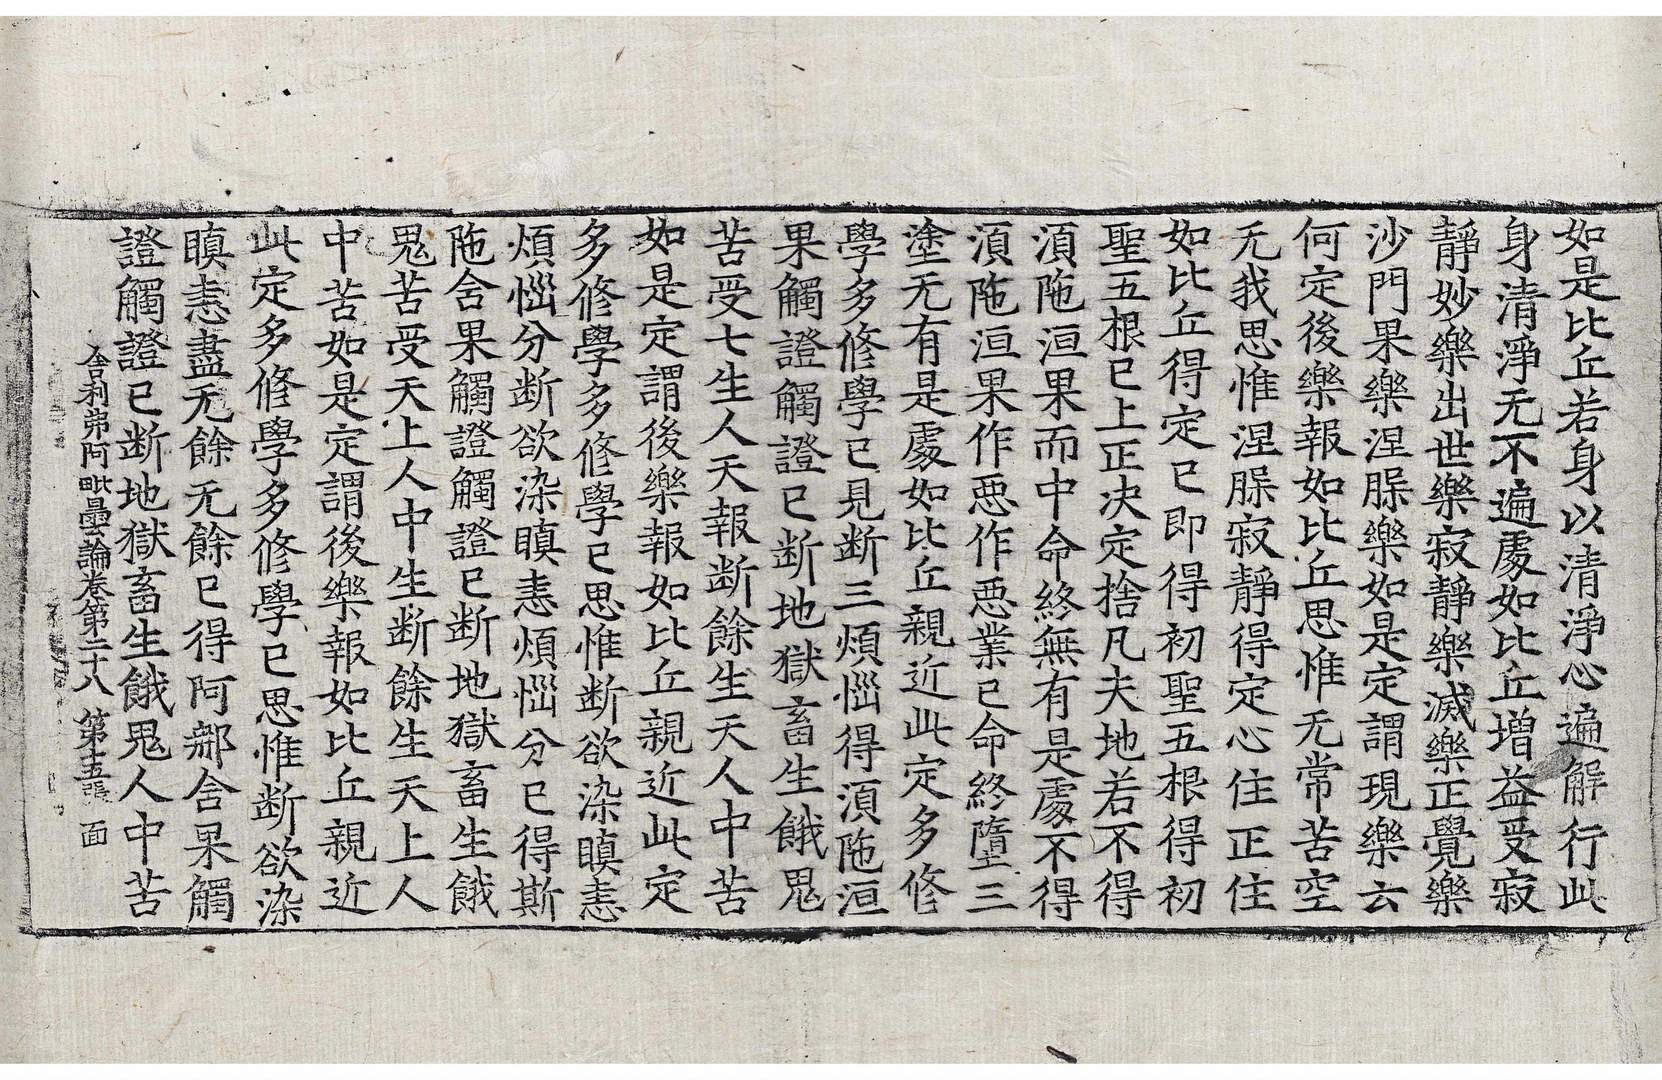 如是比丘若身以清淨心遍解行此
身清淨无不遍處如比丘增益受寂
靜妙樂出世樂寂靜樂滅樂正覺樂
沙門果樂涅槃樂樂如是定謂現樂云
何定後樂報如比丘思惟无常苦空
无我思惟涅槃寂靜得定心住正住
如比丘得定已即得初聖五根得初
聖五根已上正决定捨凡夫地若不得
湏陁洹果而中命終無有是處不得
湏陁洹果作惡作惡業已命終墮三
塗无有是處如比丘親近此定多修
學多修學已見断三煩惱得湏陁洹
果觸證觸證已断地獄畜生餓鬼
苦受七生人天報断餘生天人中苦
如是定謂後樂報如比丘親近此定
多修學多修學已思惟断欲染瞋恚
煩惱分断欲染瞋恚煩惱分已得斯
陁含果觸證觸證已断地獄畜生餓
鬼苦受天上人中生断餘生天上人
中苦如是定謂後樂報如比丘親近
此定多修學多修學已思惟断欲染
瞋恚盡无餘无餘已得阿那含果觸
證觸證已断地獄畜生餓鬼人中苦
舍利弗阿毗曇論卷第二十八 第十五張 面